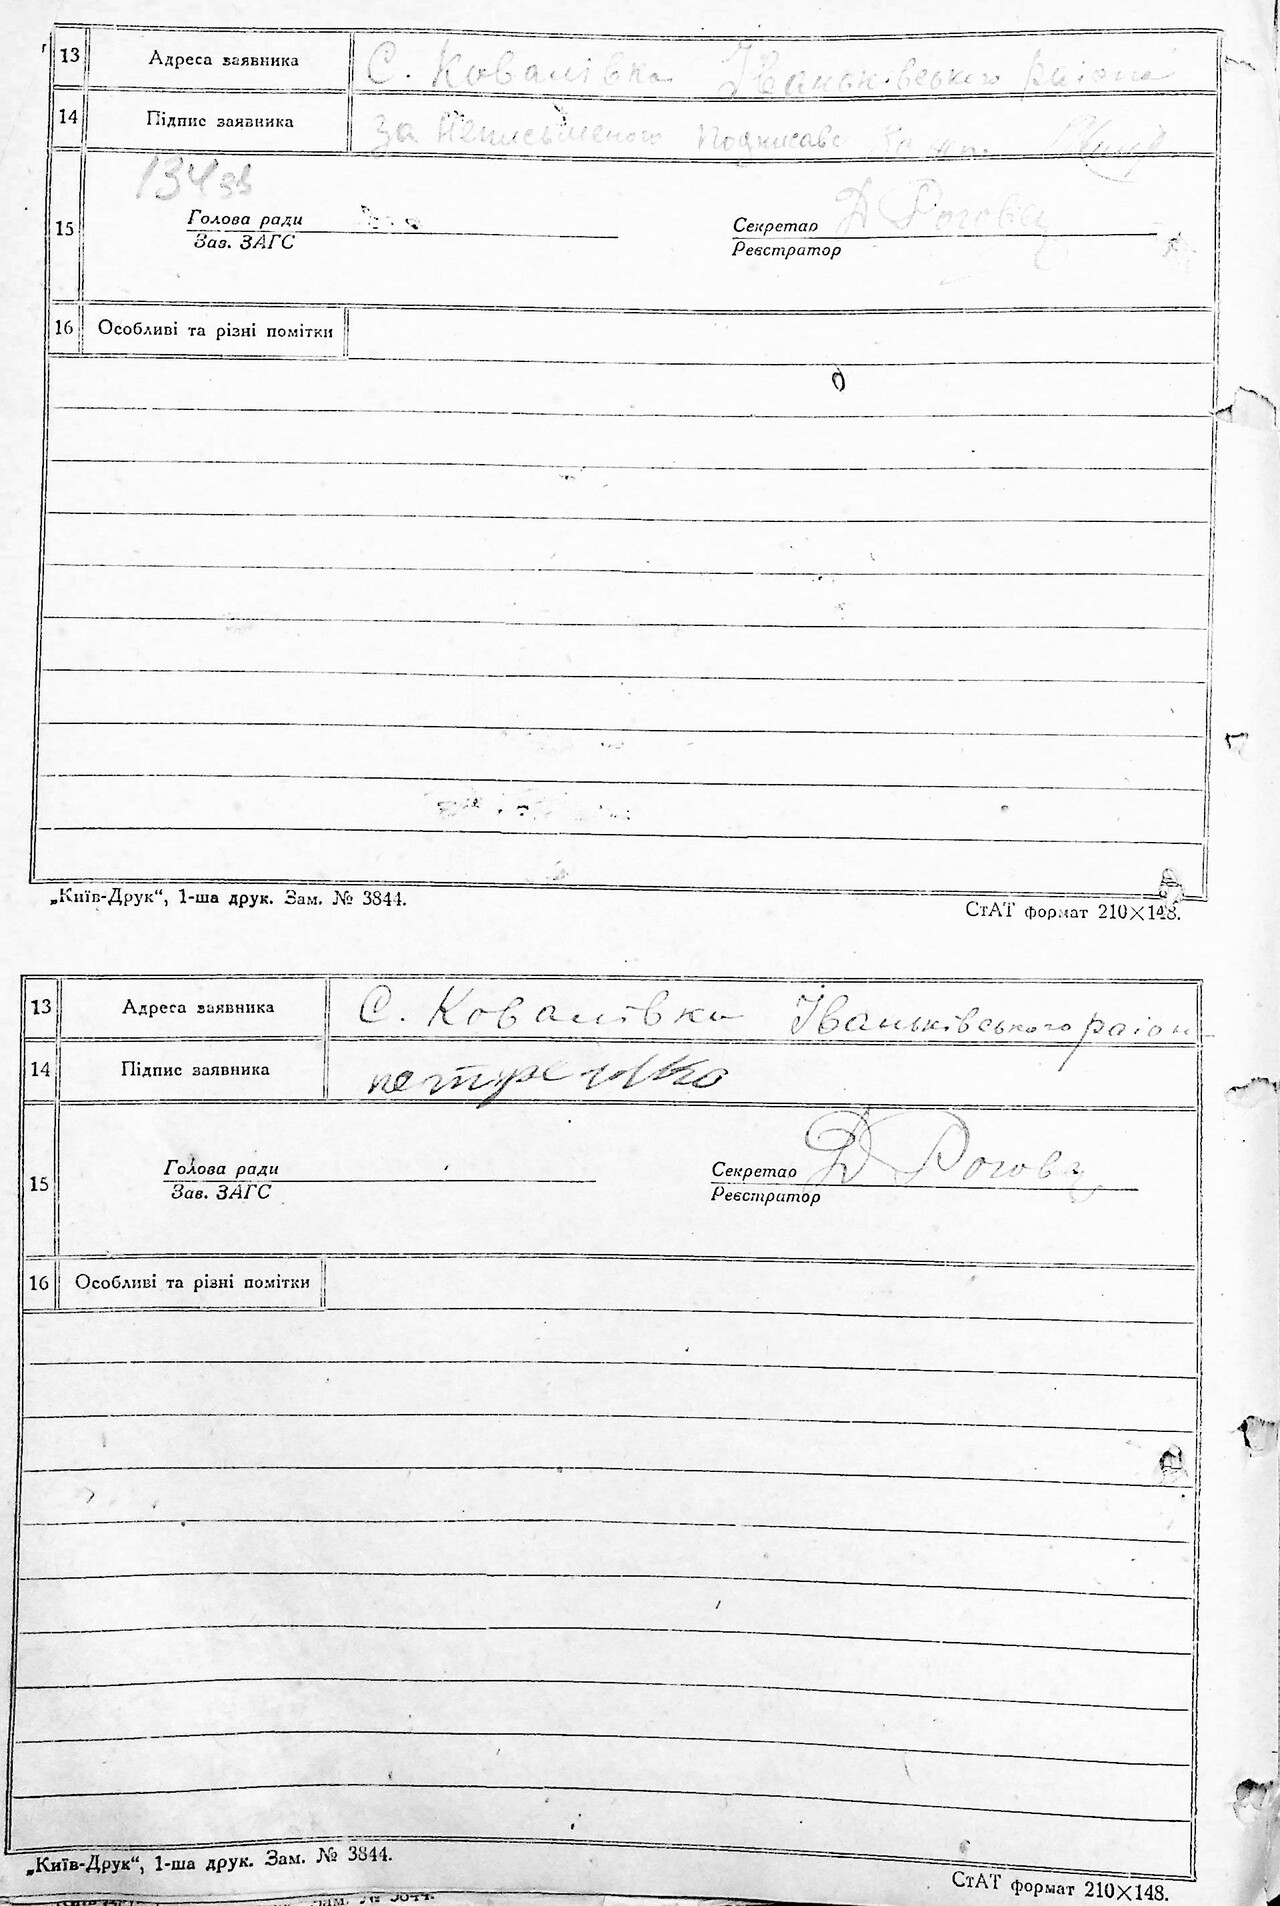 13 Адреса заявника С. Ковалівка Іваньківського району
14 Підпис заявника За неписьменого подписавс
134 зв
15 Голова ради Секретар Д Роговец
Зав. ЗАГС Реєстратор
16 Особливі та різні помітки
„Київ-Друк“, 1-ша друк. Зам. № 3844.
СтАТ формат 210×148.
13 Адреса заявника С. Ковалівка Іваньківського район
14 Підпис заявника петренко
15 Голова ради Секретар Д Роговец
Зав. ЗАГС Реєстратор
16 Особливі та різні помітки
„Київ-Друк“, 1-ша друк. Зам. № 3844.
СтАТ формат 210×148.